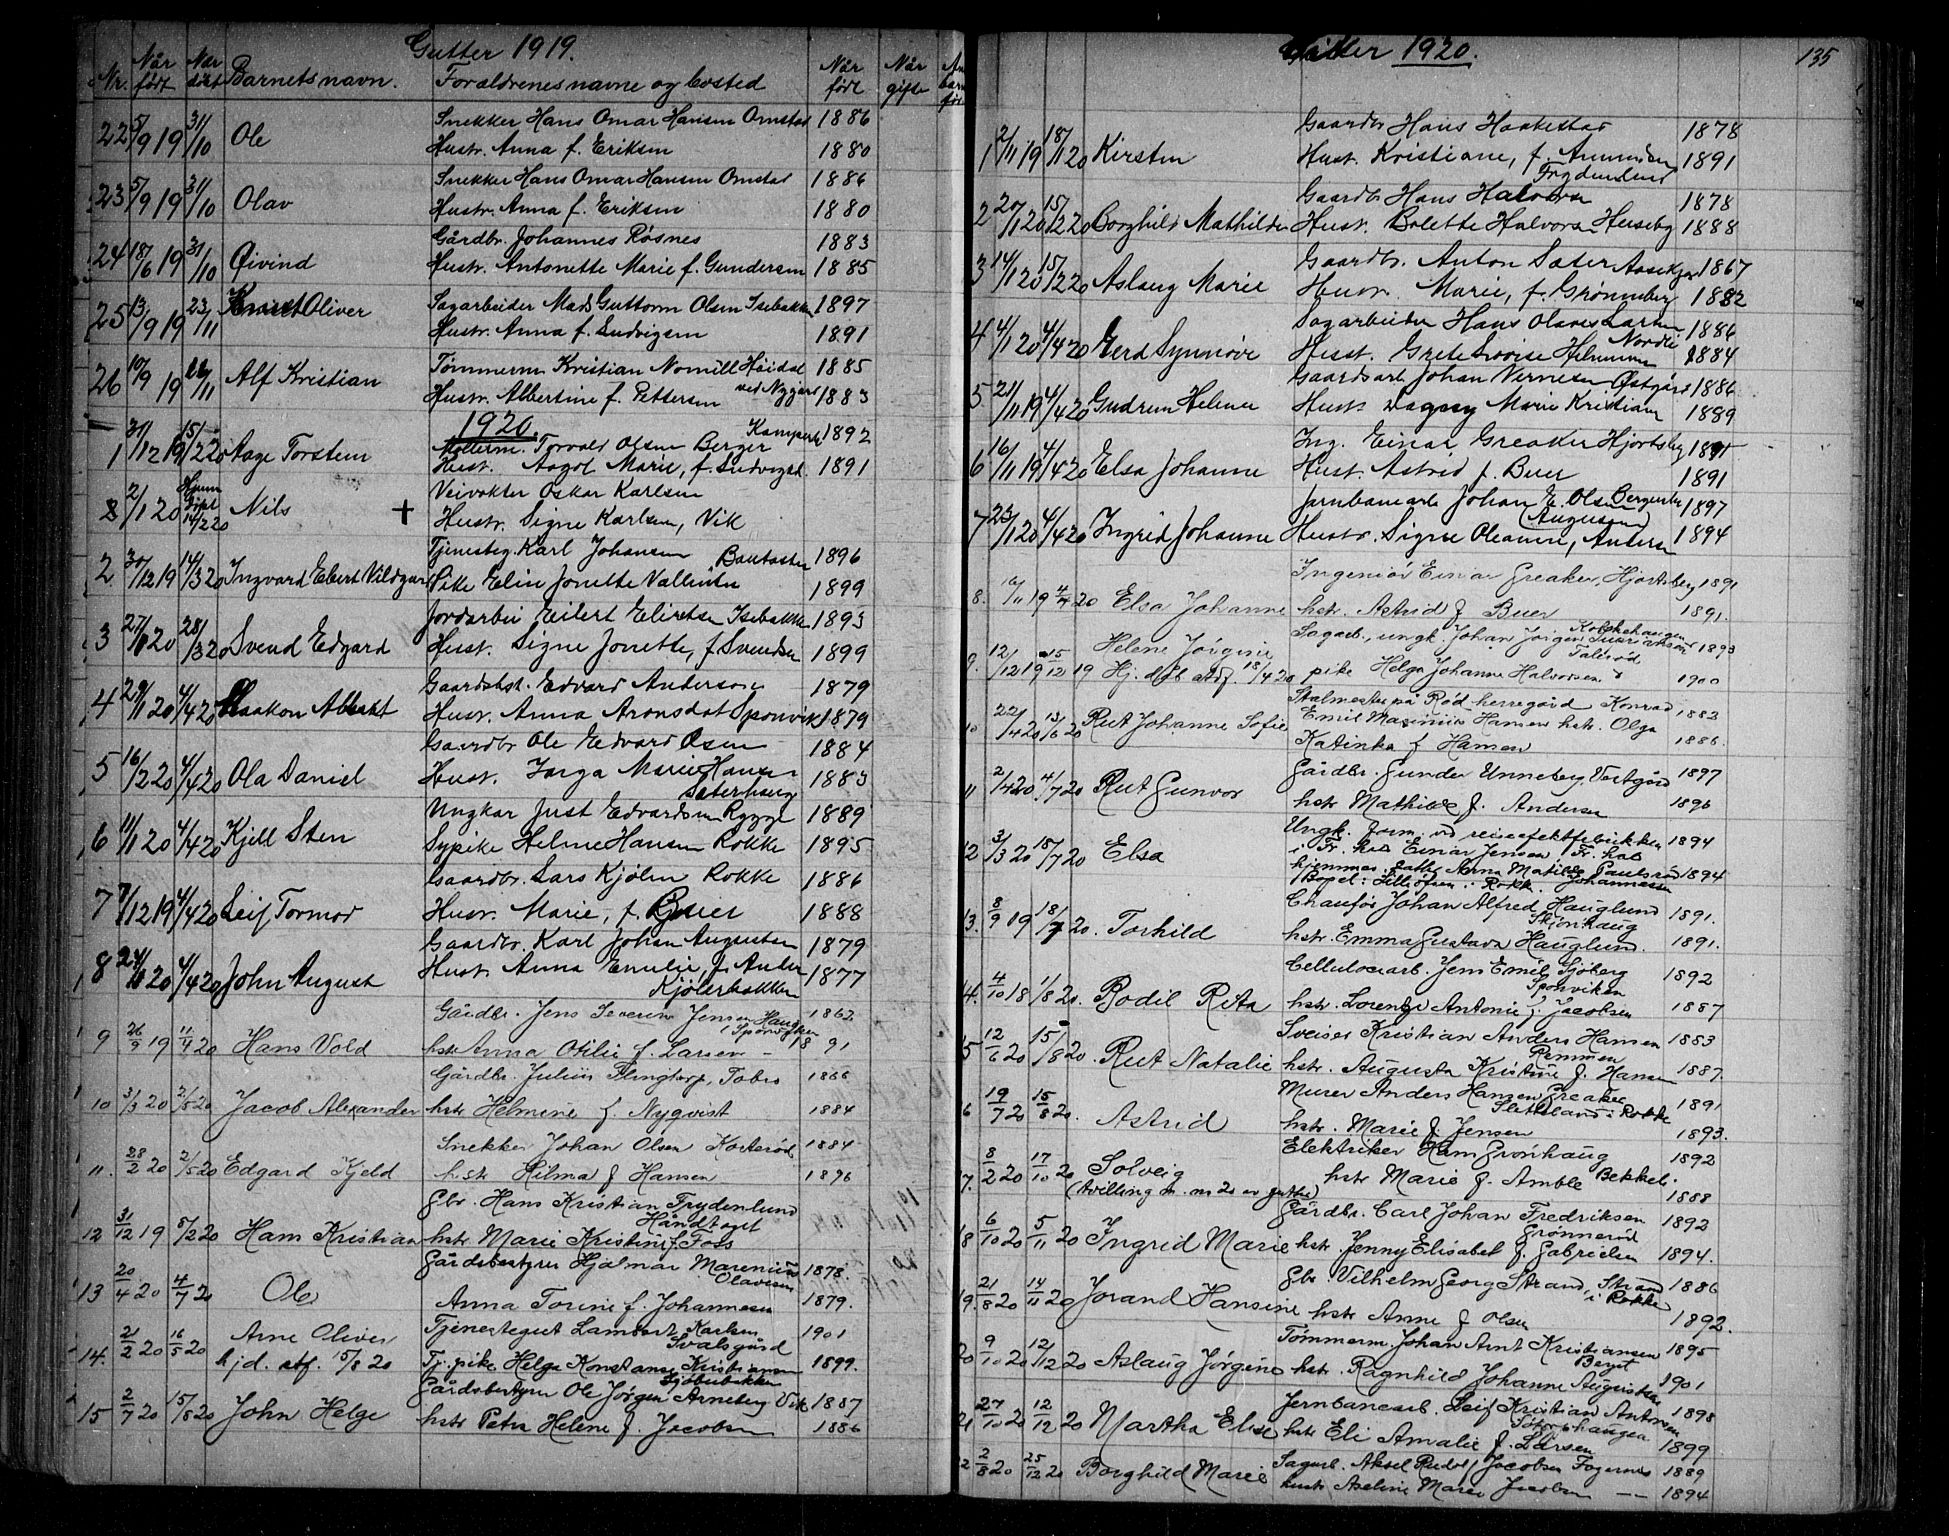 Gutter 1919.
Nr. Når født Når døbt Barnets navn. Forældrenes navne og bosted Når født Når gifte
22 5/9 19 31/10 Ole Snekker Hans Omar Hansen Omstad 1886
Hustr. Anna f. Eriksen 1880
23 5/9 19 31/10 Olav Snekker Hans Omar Hansen Omstad 1886
Hustr. Anna f. Eriksen 1880
24 18/6 19 31/10 Øivind Gårdbr. Johannes Røsnes 1883
Hustr. Antonette Marie f. Gundersen 1885
25 13/9 19 23/11 Oliver Sagarbeider Mads Guttorm Olsen Isebakken 1897
Hustr. Anna f. Ludvigsen 1891
26 10/9 19 /11 Alf Kristian Tømmerm Kristian Nomill Høidal 1885
ved Nygård
Hustr. Albertine f. Pettersen 1883
1920.
1 31/12 19 15/2 20 Aage Torstein Møllerm. Torvald Olsen Berger 1892
Hust. Aagot Marie, f. Ludvigsd. 1891
8 2/1 20 Hjem døpt 14/2 20 Nils + Veivokter Oskar Karlsen
Hustr. Signe Karlsen, Vik
2 30/12 19 14/3 20 Ingvard Ebert Vildgar Tjenesteg. Karl Johansen Bautasten 1896
Pike Elin Jonette Vallentin 1899
3 27/1 20 28/3 20 Svend Edgard Jordarbei Eilert Eliertsen Isebakken 1893
Hust. Signe Jonette, f. Svendsen 1899
4 29/11 20 4/4 20 Haakon Albert Gaardsbst. Edvard Anderson 1879
Hustr. Anna Aronsdat Sponvik 1879
5 16/2 20 4/4 20 Ola Daniel Gaardbr Ole Edvard Olsen 1884
Hust. Inga Marie Hansen 1883
Sæterhaug
6 11/1 20 4/4 20 Kjell Sten Ungkar Just Edvardsen Rygge 1889
Sypike Helene Hansen Rokke 1895
7 7/12 19 4/4 20 Leif Tormod Gaardbr. Lars Kjølen Rokke 1886
Hustr. Marie, f. Buer 1888
8 24/1 20 4/4 20 John August Gaardbr. Karl Johan Augustsen 1879
Hust. Anna Emilie f. Ander 1877
Kjølerbakken
9 26/9 19 11/4 20 Hans Vold Gårdbr. Jens Severin Jensen Haug 1862
i Sponviken
hstr Anna Otilie f. Larsen 1891
10 3/3 20 2/5 20 Jacob Alexander Gårdbr. Julius Slingtorp, Tobro 1866
hstr Helmine f. Nyqvist 1884
11. 28/2 20 2/5 20 Edgard Kjeld Snekker Johan Olsen Korterød 1884
hstr Hilma f Hansen 1896
12 31/12 19 5/2 20 Hans Kristian Gbr. Hans Kristian Frydenlund
Håndtaget
hstr Marie Kristine f. Foss
13 20/4 20 4/7 20 Ole Gårdsbestyrer Hjalmar Marenius 1878.
Olavesen
Anna Torine f. Johannesen 1879.
14. 21/2 20 16/5 20 Arne Oliver Tjenestegut Lambert Karlsen 1901
Svalsgård
hjd. stf. 15/8 20 Tj. pike Helga Konstanse Kristiansen 1899.
Sjøbubakken
15 2/7 20 15/8 20 John Helge Gårdsbestyrer Ole Jørgen Arneberg Vik 1887
hstr Petra Helene f. Jacobsen 1886
1920. 135
1 2/11 19 18/1 20 Kirsten Gaardbr Hans Haakestad 1878
Hust. Kristiane, f. Ammundsen 1891
Frydenlund
2 20/1 20 15/2 20 Borghild Mathilde Gaardb. Hans Halvorsen 1878
Hust. Bolette Halvorsen Huseby 1888
3 14/1 20 15/2 20 Aslaug Marie Gaardbr. Anton Sæter 1867
Hustr. Marie, f. Grønneberg 1882
4 4/1 20 4/4 20 Gerd Synnøve Sagarbeider Hans Olaves Larsen 1886
Nordli
Hust. Grete Lovise Helmersen 1884
5 21/11 19 4/4 20 Gudrun Helene Gaardsarb. Johan Vernesen Østgård 1886
Hust. Dagny Marie Kristiansen 1899
6 16/11 19 4/4 20 Elsa Johanne Ing. Einar Greaker Hjortsberg 1891
Hust. Astrid f. Buer 1891
7 23/1 20 4/4 20 Ingrid Johanne Jernbanearb Johan E. Olsen Bergerbk 1897
(Augustsen)
Hustr. Signe Oleanne, Andersen 1894
8. 16/11 19 4/4 20 Elsa Johanne Ingeniør Einar Greaker, Hjortsberg 1891
hstr. Astrid f Buer 1891.
9. 12/12 19 15/12 19 Helene Jørgine Sagarb., ungk. Johan Jørgen 1893
Hj. døb stf. 18/4 20 pike Helga Johanne Halvorsen 1900
10 22/4 20 13/6 20 Rut Johanne Sofie Stalmester på Rød herregård Konrad 1883
Emil Maximilian Hansen hstr. Olga
Katinka f Hansen 1886.
11 2/4 20 4/7 20 Rut Gunvor Gårdbr. Gunder Unneberg Vestgård 1897
hstr Mathilde f. Andersen 1896
12 3/3 20 18/7 20 Elsa Ungk. form. ved reiseefektfabrikken 1894
i Fr. hald Einar Jensen, Fr. hald
hjemmev. datter Anna Matilde Paulsrød 1894
Bopel: Rokke. Johannessen
13. 8/9 19 18/7 20. Torhild Chaufør Johan Alfred Hauglund 1891.
Skjønhaug
hstr. Emma Gustava Hauglund. 1891.
14. 4/10 18 1/8 20. Bodil Rita Cellulosearb. Jens Emil Sjøberg 1892
Sponviken
hstr. Lorentze Antonie f. Jacobsen 1887
15 12/6 20 15/8 20. Rut Natalie Sveiser Kristian Anders Hansen 1883
Remmen
hstr. Augusta Kristine f. Hansen 1887.
6 19/7 20 15/8 20. Astrid Murer Anders Hansen Greaker 1891
Sletteland i Rokke
hstr. Marie f. Jensen 1893.
7. 8/2 20 17/10 20 Solveig Elektriker Hans Grønhaug 1892
(tvilling m. nr 20 av gutter) hstr Marie f. Amble Bekkel. 1888
8 6/10 20 5/11 20 Ingrid Marie Gårdbr. Carl Johan Fredriksen 1892
Grønnerød
hstr. Jenny Elisabet f. Gabrielsen 1894.
19. 21/8 20 14/11 20 Jorand Hansine Gbr. Vilhelm Georg Strand, Strand 1886
i Rokke
hstr Anne f Olsen 1892.
20 9/10 20 12/12 20 Aslaug Jørgine Tømmerm Johan Arnt Kristiansen 1895
Berget
hstr. Ragnhild Johanne Augusta 1901
21 27/10 20 12/12 20 Martha Elise Jernbanearb. Leif Kristian Antonsen 1898
hstr Eli Amalie f. Larsen 1899
2 2/8 20 25/12 20 Borghild Marie Sagarb. Aksel Rudolf Jacobsen Fagernes 1889
hustr Aseline Marie Jacobsen —— 1894